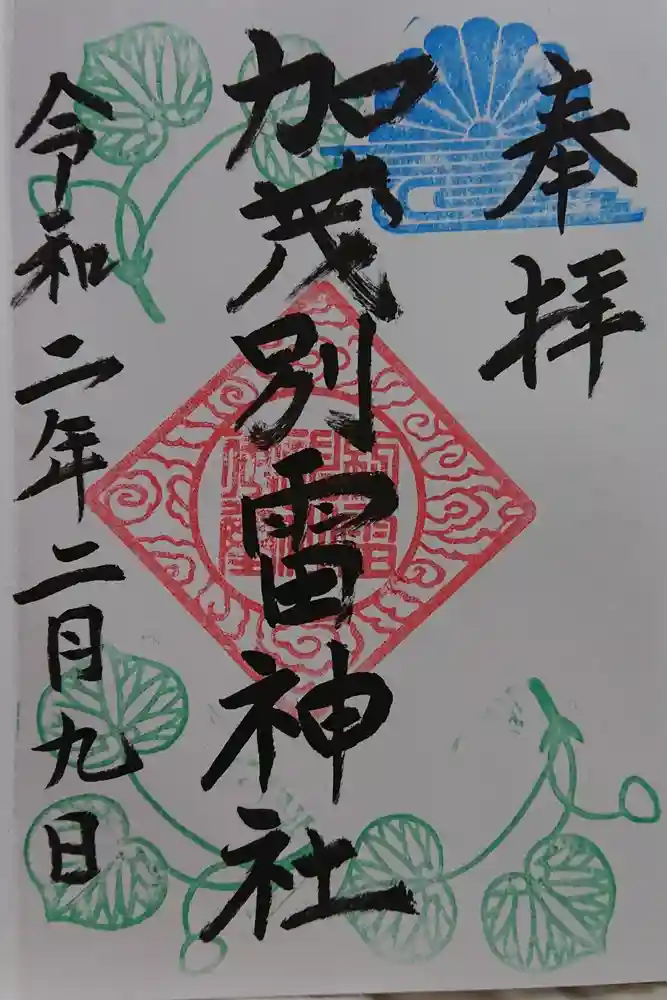 奉拝
加茂別雷神社
令和二年二月九日